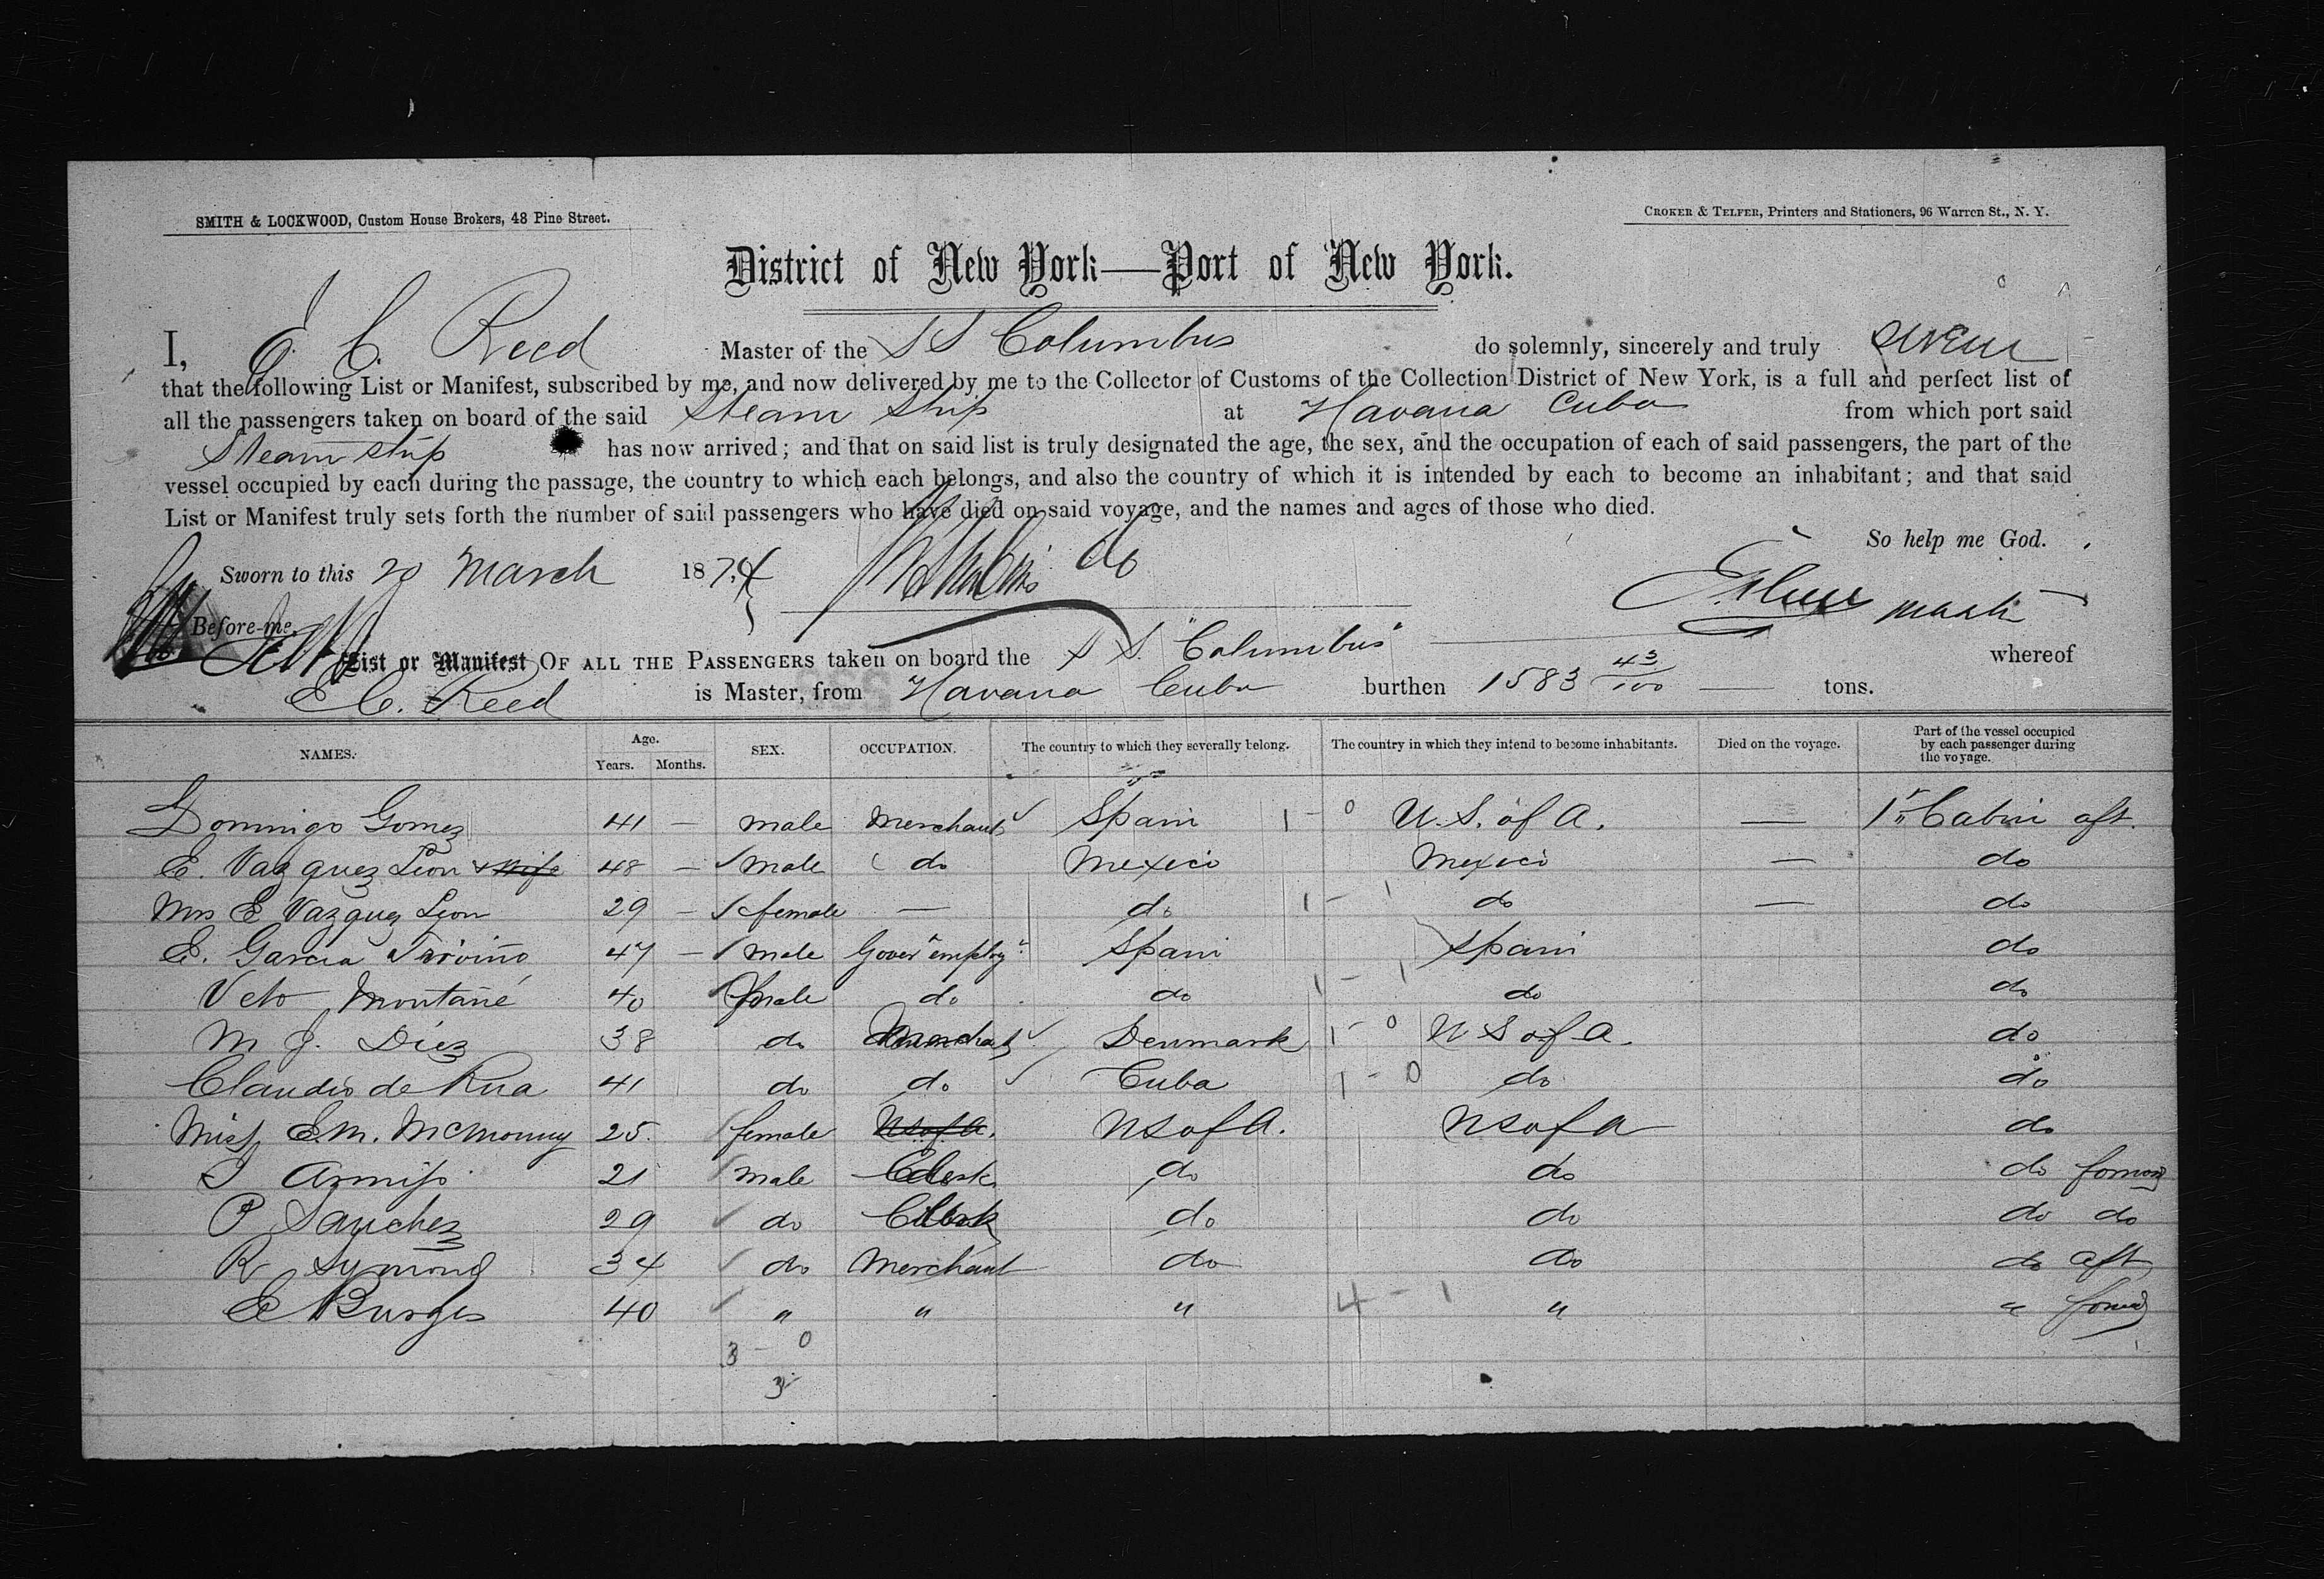 SMITH & LOCKWOOD, Custom House Brokers, 48 Pine Street.
CROKER & TELFER, Printers and Stationers, 96 Warren St., N. Y.
District of New York—Port of New York.
I, E. C. Reed Master of the S S Columbus do solemnly, sincerely and truly swear
that the following List or Manifest, subscribed by me, and now delivered by me to the Collector of Customs of the Collection District of New York, is a full and perfect list of
all the passengers taken on board of the said Steam Ship at Havana Cuba from which port said
Steam Ship has now arrived; and that on said list is truly designated the age, the sex, and the occupation of each of said passengers, the part of the
vessel occupied by each during the passage, the country to which each belongs, and also the country of which it is intended by each to become an inhabitant; and that said
List or Manifest truly sets forth the number of said passengers who have died on said voyage, and the names and ages of those who died.
So help me God.
Sworn to this 20 March 1874
Before me,
List or Manifest OF ALL THE PASSENGERS taken on board the S S. "Columbus" whereof
E C. Reed is Master, from Havana Cuba burthen 1583 43/100 — tons.
NAMES. Age. Years. Months. SEX. OCCUPATION. The country to which they severally belong. The country in which they intend to become inhabitants. Died on the voyage. Part of the vessel occupied by each passenger during the voyage.
Domingo Gomez 41 — male Merchant Spain 1 - 0 U. S. of A. — 1st Cabin aft.
E. Vazquez Leon & wife 48 — male do Mexico Mexico — do
Mrs E Vazquez Leon 29 — female — do 1 - 1 do — do
E. Garcia Treviño 47 — male Gover employ Spain Spain do
Veto Montañé 40 male do do 1 - 1 do do
M J. Diez 38 do Merchant Denmark 1 - 0 U S of A. do
Claudio de Rua 41 do do Cuba 1 - 0 do do
Miss E. M. 25. female U S of A. U S of A. U S of A do
Armijo 21 male Clerk do do do forward
P Sanchez 29 do Clerk do do do do
R Symond 34 do Merchant do do do aft
E Burges 40 " " " 4 - 1 " " forwd
3 - 0
3